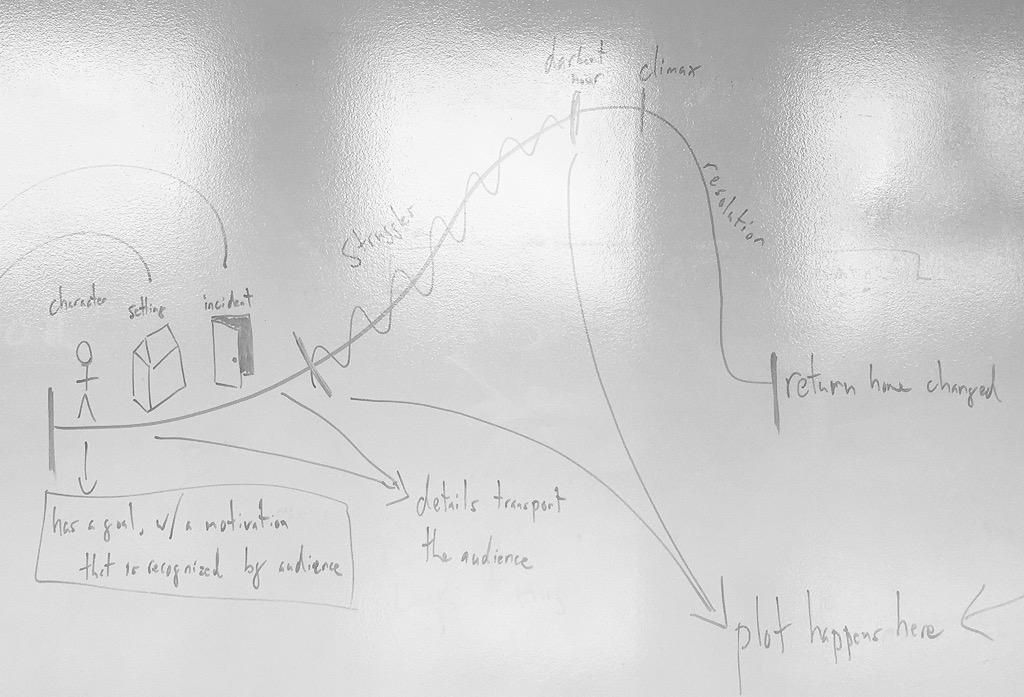 darkest
hour
climax
resolution
Struggle
character
setting
incident
return home changed
has a goal, w/ a motivation
that is recognized by audience
details transport
the audience
plot happens here